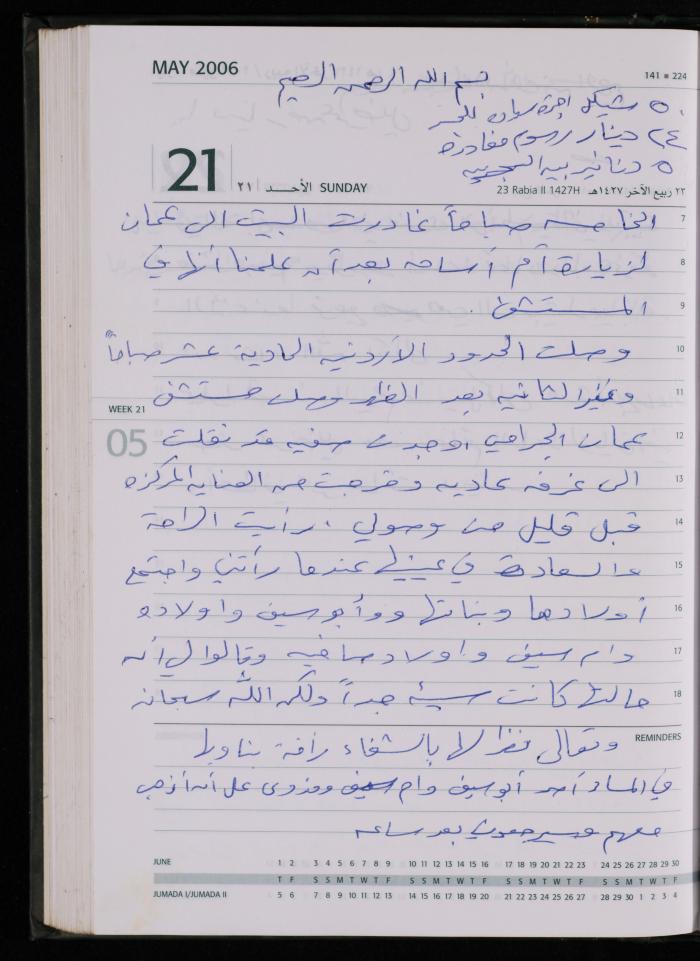 MAY 2006
بسم الله الرحمن الرحيم
141 ■ 224
٥٠ شيكل اجرة سيارة للجسر
٢٤ دينار رسوم مغادرة
٥ دنانير بين الجسرين
21 ٢١ الأحـــد SUNDAY
23 Rabia II 1427H ٢٣ ربيع الآخر ١٤٢٧هـ
7 الخامسه صباحاً غادرت البيت الى عمان
8 لزيارة أم أسامه بعد أن علمنا أنها في
9 المستشفى .
10 وصلت الحدود الأردنيه الحادية عشر صباحاً
11 وعند الثانيه بعد الظهر وصلت مستشفى
WEEK 21
05
12 عمان الجراحي اوجدت صفيه قد نقلت
13 الى غرفه عاديه وخرجت من العنايه المركزه
14 قبل قليل من وصولي . رأيت الراحة
15 والسعادة في عينيها عندما رأتني واجتمع
16 أولادها وبناتها وأبو سيف واولاده
17 وام سيف واولاد صافيه وقالوا لي أنه
18 حالتها كانت سيئه جداً ولكن الله سبحانه
REMINDERS
وتعالى نظر لها بالشفاء رأفة بناولها
في المساء أصر أبو سيف وام سيف وفدوى على أن أذهب
معهم وسيرجعوني بعد ساعه
JUNE 1 2 3 4 5 6 7 8 9 10 11 12 13 14 15 16 17 18 19 20 21 22 23 24 25 26 27 28 29 30
T F S S M T W T F S S M T W T F S S M T W T F S S M T W T F
JUMADA I/JUMADA II 5 6 7 8 9 10 11 12 13 14 15 16 17 18 19 20 21 22 23 24 25 26 27 28 29 30 1 2 3 4